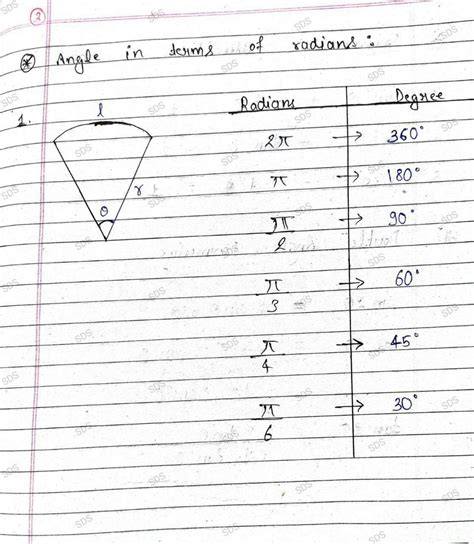 2
* Angle in terms of radians :
1.
l
r
θ
Radians Degree
2π → 360°
π → 180°
π/2 → 90°
π/3 → 60°
π/4 → 45°
π/6 → 30°
SDS